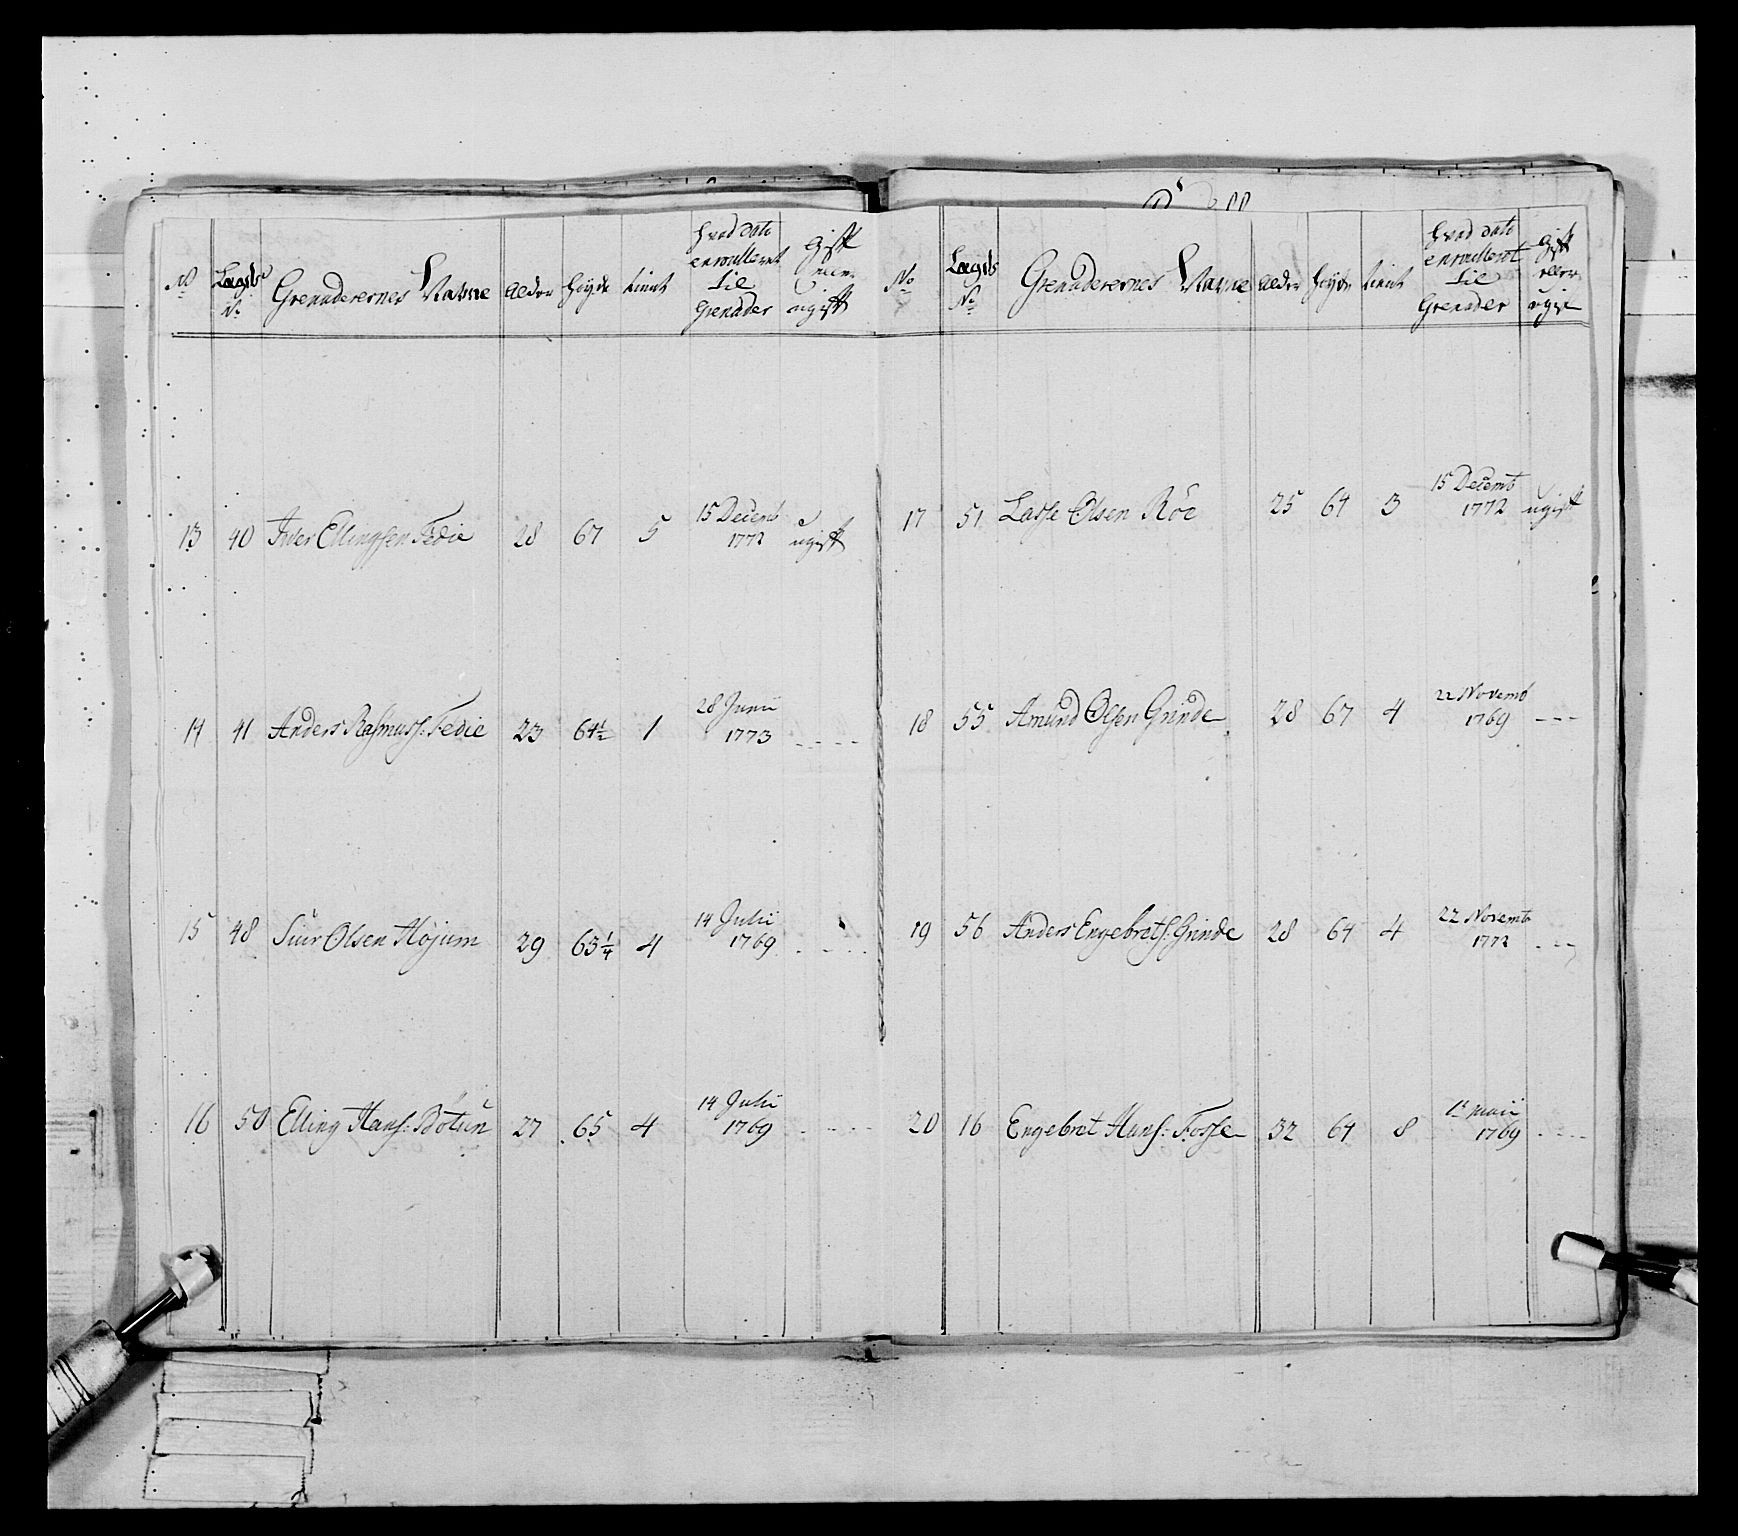 No Lægds No Grenaderernes Navne alder høyde tient hvad dato enroulleret til Grenader Gift eller ugift
13 40 Iver Ellingsen Fedie 28 67 5 15 Decemb 1772 ugift
14 41 Anders Rasmuss: Fedie 23 64½ 1 28 Junii 1773 - - - -
15 48 Siur Olsen Højum 29 63¼ 4 14 Julii 1769 - - - -
16 50 Elling Hans: Bøtun 27 65 4 14 Julii 1769 - - - -
No Lægds No Grenaderernes Navne alder høyde tient hvad dato enroulleret til Grenader Gift eller ugift
17 51 Lasse Olsen Röe 25 64 3 15 Decemb 1772 ugift
18 55 Amund Olsen Grinde 28 67 4 22 Novemb 1769 - - -
19 56 Anders Engebrets: Grinde 28 64 4 22 Novemb 1772 - - -
20 16 Engebret Hans: Fosse 32 64 8 1t maii 1769 - - - -